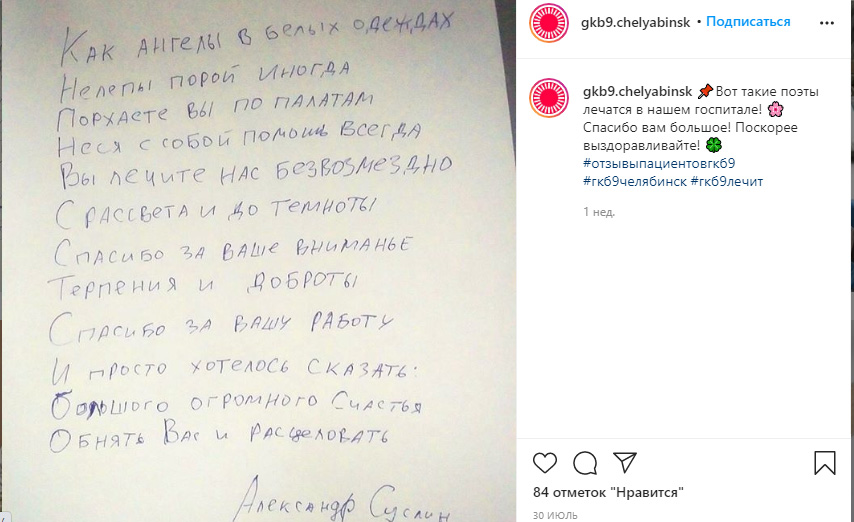 Как ангелы в белых одеждах
Нелепы порой иногда
Порхаете вы по палатам
Неся с собой помощь всегда
Вы лечите нас безвозмездно
С рассвета и до темноты
Спасибо за ваше вниманье
Терпения и доброты
Спасибо за вашу работу
И просто хотелось сказать:
Большого огромного Счастья
Обнять Вас и расцеловать
Александр Суслин
gkb9.chelyabinsk • Подписаться
gkb9.chelyabinsk 📌Вот такие поэты
лечатся в нашем госпитале! 🌸
Спасибо вам большое! Поскорее
выздоравливайте! 🍀
#отзывыпациентовгкб9
#гкб9челябинск #гкб9лечит
1 нед.
84 отметок "Нравится"
30 ИЮЛЬ